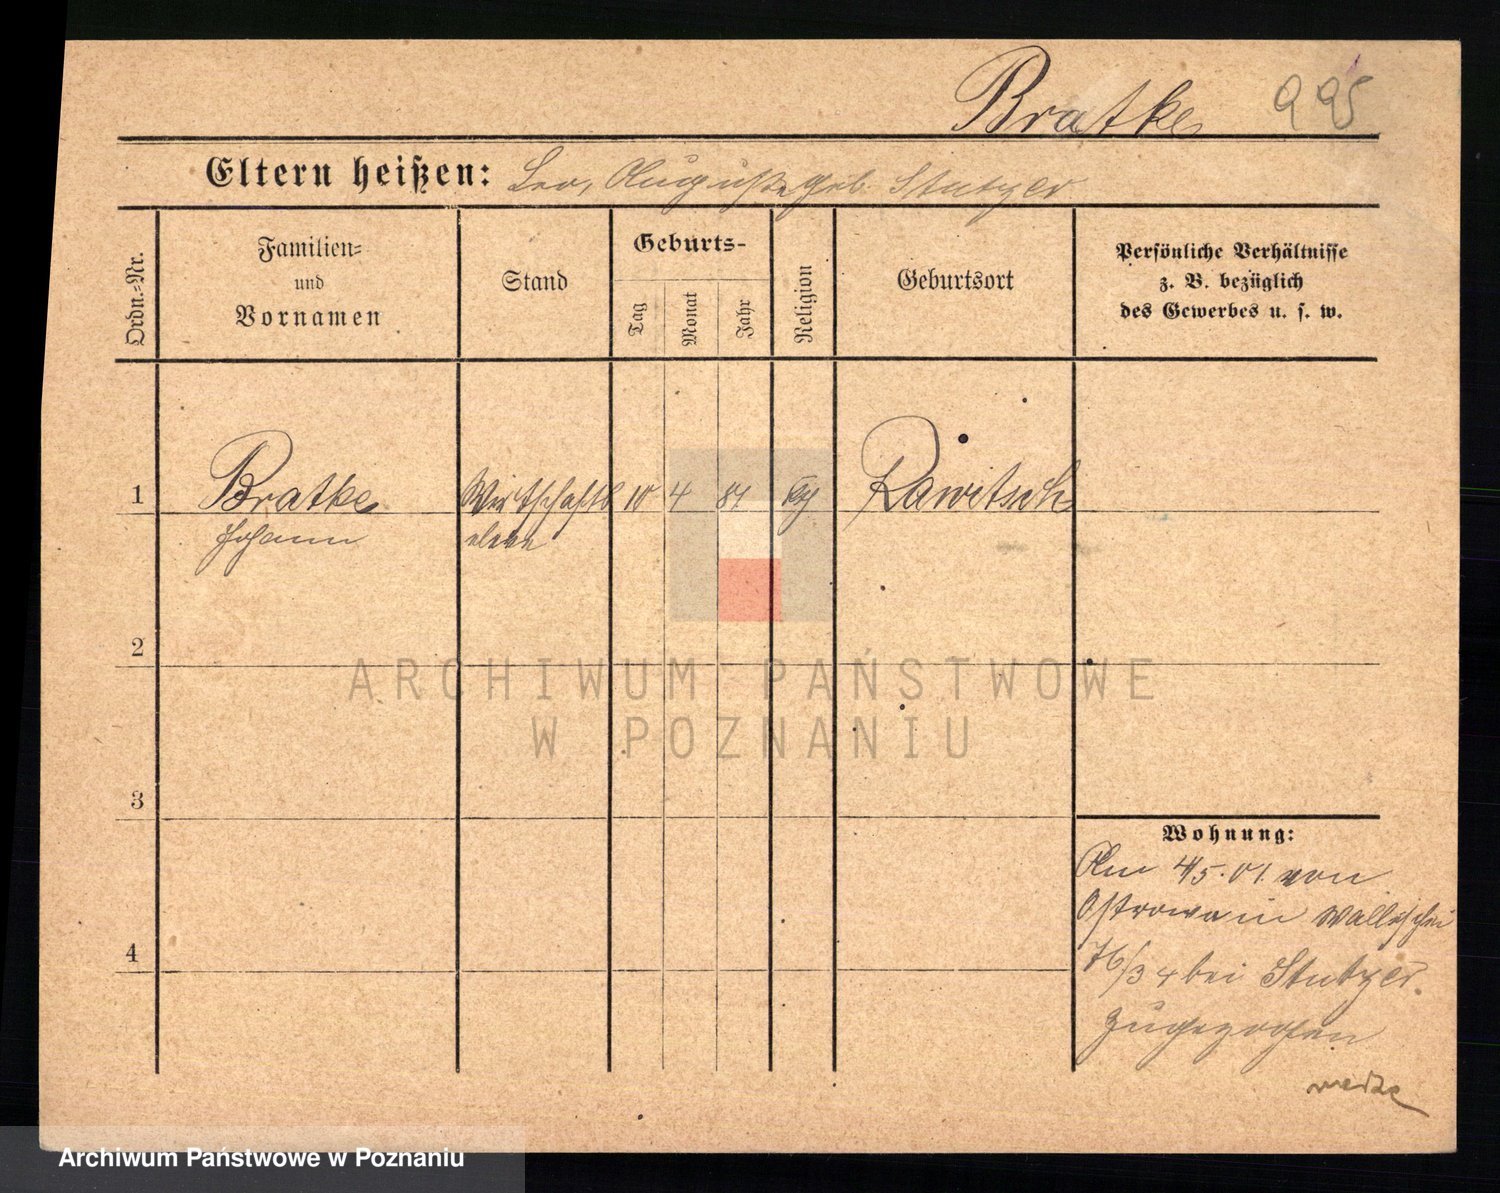 Bratke
Eltern heißen: Leo, Auguste geb. Stutzer
Ordn.-Nr.
Familien-
und
Vornamen
Stand
Geburts-
Tag
Monat
Jahr
Religion
Geburtsort
Persönliche Verhältnisse
z. B. bezüglich
des Gewerbes u. s. w.
1
Bratke
Johann
Wirtschafts
eleve
10
4
84
Rawitsch
2
3
4
ARCHIWUM PAŃSTWOWE
W POZNANIU
Wohnung:
Am 4/5.01. von
Ostrowo in Wallischei
76/3 bei Stutzer.
zugezogen
Archiwum Państwowe w Poznaniu